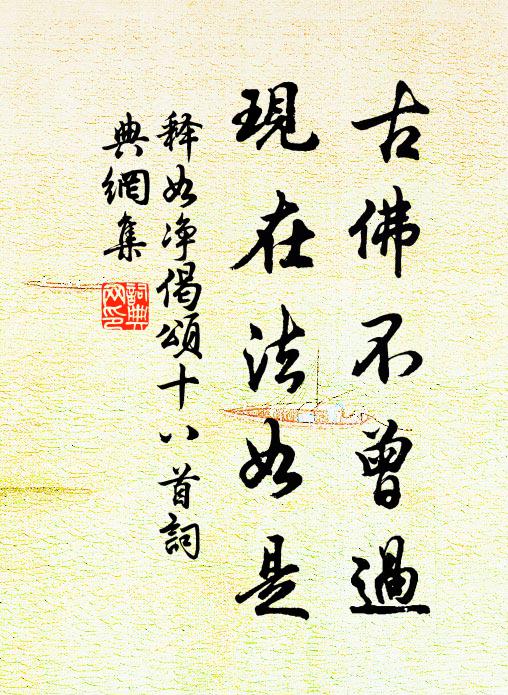 古佛不曾過
現在法如是
释如净偈頌十八首詞
典網集
詞典
网印